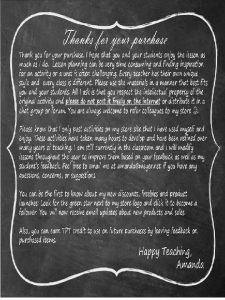 Thanks for your purchase
Thank you for your purchase. I hope that you and your students enjoy the lesson as
much as I do. Lesson planning can be very time consuming and finding inspiration
for an activity or a unit is often challenging. Every teacher has their own unique
style and every class is different. Please use the materials in a manner that best fits
you and your students. All I ask is that you respect the intellectual property of the
original activity and please do not post it freely on the Internet or distribute it in a
chat group or forum. You are always welcome to refer colleagues to my store ☺.
Please know that I only post activities on my store that I have used myself and
enjoy. These activities have taken many hours to develop and have been refined over
many years of teaching. I am still currently in the classroom and I will modify
lessons throughout the year to improve them based on your feedback as well as my
student's feedback. Feel free to email me at if you have any
questions, concerns, or suggestions.
You can be the first to know about my new discounts, freebies and product
launches. Look for the green star next to my store logo and click it to become a
follower. You will now receive email updates about new products and sales.
Also, you can earn TPT credit to use on future purchases by leaving feedback on
purchased items.
Happy Teaching,
Amanda